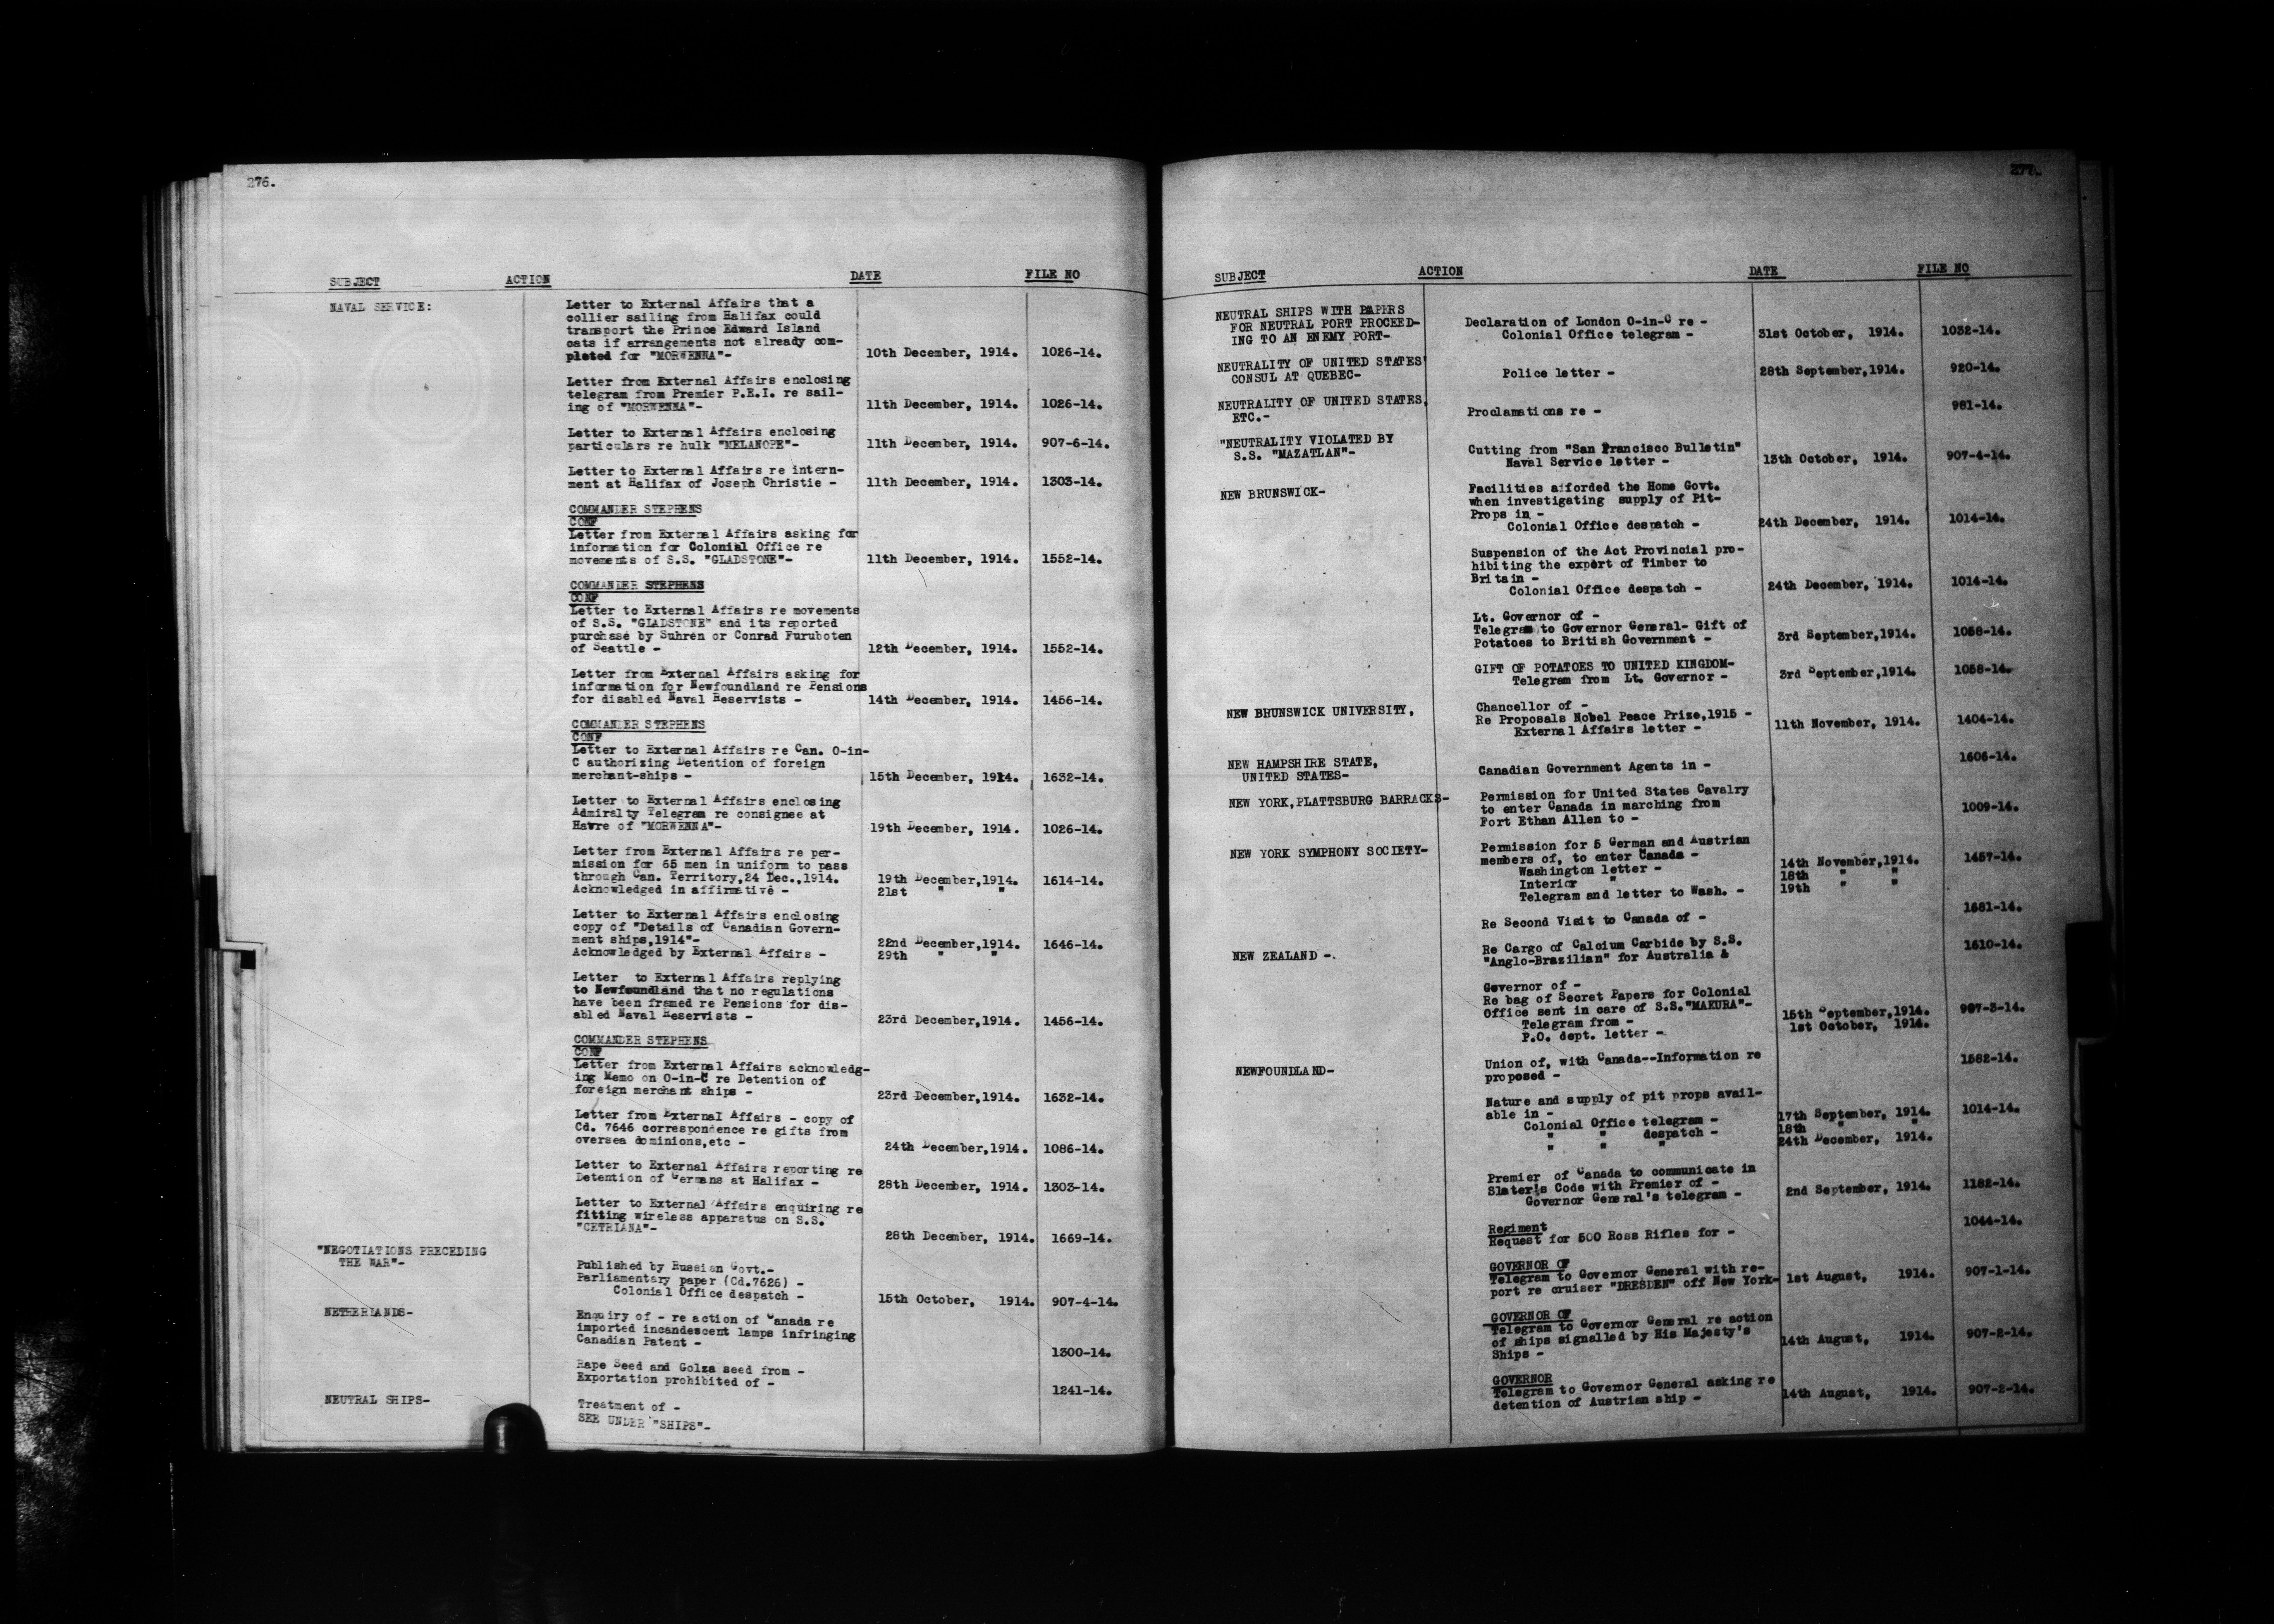 276.
SUBJECT ACTION DATE FILE NO
NAVAL SERVICE: Letter to External Affairs that a
collier sailing from Halifax could
transport the Prince Edward Island
oats if arrangements not already com-
pleted for "MORWENNA"- 10th December, 1914. 1026-14.
Letter from External Affairs enclosing
telegram from Premier P.E.I. re sail-
ing of "MORWENNA"- 11th December, 1914. 1026-14.
Letter to External Affairs enclosing
particulars re hulk "MELANOPE"- 11th December, 1914. 907-6-14.
Letter to External Affairs re intern-
ment at Halifax of Joseph Christie - 11th December, 1914. 1303-14.
COMMANDER STEPHENS
CONF
Letter from External Affairs asking for
information for Colonial Office re
movements of S.S. "GLADSTONE"- 11th December, 1914. 1552-14.
COMMANDER STEPHENS
CONF
Letter to External Affairs re movements
of S.S. "GLADSTONE" and its reported
purchase by Suhren or Conrad Furuboten
of Seattle - 12th December, 1914. 1552-14.
Letter from External Affairs asking for
information for Newfoundland re Pensions
for disabled Naval Reservists - 14th December, 1914. 1456-14.
COMMANDER STEPHENS
CONF
Letter to External Affairs re Can. O-in-
C authorizing Detention of foreign
merchant-ships - 15th December, 1914. 1632-14.
Letter to External Affairs enclosing
Admiralty Telegram re consignee at
Havre of "MORWENNA"- 19th December, 1914. 1026-14.
Letter from External Affairs re per-
mission for 65 men in uniform to pass
through Can. Territory,24 Dec.,1914. 19th December,1914. 1614-14.
Acknowledged in affirmative - 21st " "
Letter to External Affairs enclosing
copy of "Details of Canadian Govern-
ment ships,1914"- 22nd December,1914. 1646-14.
Acknowledged by External Affairs - 29th " "
Letter to External Affairs replying
to Newfoundland that no regulations
have been framed re Pensions for dis-
abled Naval Reservists - 23rd December,1914. 1456-14.
COMMANDER STEPHENS
CONF
Letter from External Affairs acknowledg-
ing Memo on O-in-C re Detention of
foreign merchant ships - 23rd December,1914. 1632-14.
Letter from External Affairs - copy of
Cd. 7646 correspondence re gifts from
oversea dominions,etc - 24th December,1914. 1086-14.
Letter to External Affairs reporting re
Detention of Germans at Halifax - 28th December, 1914. 1303-14.
Letter to External Affairs enquiring re
fitting wireless apparatus on S.S.
"CETRIANA"- 28th December, 1914. 1669-14.
"NEGOTIATIONS PRECEDING
THE WAR"- Published by Russian Govt.-
Parliamentary paper (Cd.7626) -
Colonial Office despatch - 15th October, 1914. 907-4-14.
NETHERLANDS- Enquiry of - re action of Canada re
imported incandescent lamps infringing
Canadian Patent - 1300-14.
Rape Seed and Golza seed from -
Exportation prohibited of - 1241-14.
NEUTRAL SHIPS- Treatment of -
SEE UNDER "SHIPS"-
277.
SUBJECT ACTION DATE FILE NO
NEUTRAL SHIPS WITH PAPERS
FOR NEUTRAL PORT PROCEED- Declaration of London O-in-C re -
ING TO AN ENEMY PORT- Colonial Office telegram - 31st October, 1914. 1032-14.
NEUTRALITY OF UNITED STATES'
CONSUL AT QUEBEC- Police letter - 28th September,1914. 920-14.
NEUTRALITY OF UNITED STATES,
ETC.- Proclamations re - 981-14.
"NEUTRALITY VIOLATED BY
S.S. "MAZATLAN"- Cutting from "San Francisco Bulletin"
Naval Service letter - 13th October, 1914. 907-4-14.
NEW BRUNSWICK- Facilities afforded the Home Govt.
when investigating supply of Pit-
Props in -
Colonial Office despatch - 24th December, 1914. 1014-14.
Suspension of the Act Provincial pro-
hibiting the export of Timber to
Britain -
Colonial Office despatch - 24th December, 1914. 1014-14.
Lt. Governor of -
Telegram to Governor General- Gift of
Potatoes to British Government - 3rd September,1914. 1058-14.
GIFT OF POTATOES TO UNITED KINGDOM-
Telegram from Lt. Governor - 3rd September,1914. 1058-14.
NEW BRUNSWICK UNIVERSITY, Chancellor of -
Re Proposals Nobel Peace Prize,1915 -
External Affairs letter - 11th November, 1914. 1404-14.
NEW HAMPSHIRE STATE,
UNITED STATES- Canadian Government Agents in - 1606-14.
NEW YORK,PLATTSBURG BARRACKS- Permission for United States Cavalry
to enter Canada in marching from
Fort Ethan Allen to - 1009-14.
NEW YORK SYMPHONY SOCIETY- Permission for 5 German and Austrian
members of, to enter Canada -
Washington letter - 14th November,1914. 1457-14.
Interior " 18th " "
Telegram and letter to Wash. - 19th " "
Re Second Visit to Canada of - 1681-14.
NEW ZEALAND -. Re Cargo of Calcium Carbide by S.S.
"Anglo-Brazilian" for Australia & 1610-14.
Governor of -
Re bag of Secret Papers for Colonial
Office sent in care of S.S."MAKURA"-
Telegram from - 15th September,1914. 907-3-14.
P.O. dept. letter - 1st October, 1914.
NEWFOUNDLAND- Union of, with Canada--Information re
proposed - 1582-14.
Nature and supply of pit props avail-
able in -
Colonial Office telegram - 17th September, 1914. 1014-14.
" " despatch - 18th " "
" " " 24th December, 1914.
Premier of Canada to communicate in
Slater's Code with Premier of -
Governor General's telegram - 2nd September, 1914. 1182-14.
Regiment
Request for 500 Ross Rifles for - 1044-14.
GOVERNOR OF
Telegram to Governor General with re-
port re cruiser "DRESDEN" off New York- 1st August, 1914. 907-1-14.
GOVERNOR OF
Telegram to Governor General re action
of ships signalled by His Majesty's
Ships - 14th August, 1914. 907-2-14.
GOVERNOR
Telegram to Governor General asking re
detention of Austrian ship - 14th August, 1914. 907-2-14.